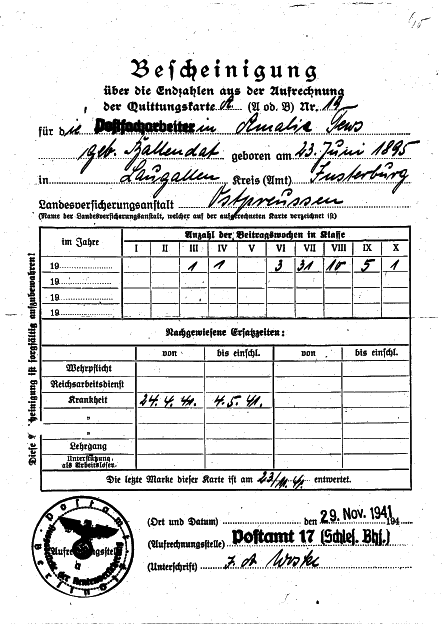 15
Bescheinigung
über die Endzahlen aus der Aufrechnung
der Quittungskarte A (A od. B) Nr. 19
für die Postfacharbeiterin Amalie Tews
geb. Ballendat geboren am 23. Juni 1895
in Laugallen Kreis (Amt) Insterburg
Landesversicherungsanstalt Ostpreussen
(Name der Landesversicherungsanstalt, welcher auf der aufgerechneten Karte verzeichnet ist)
im Jahre Anzahl der Beitragswochen in Klasse
I II III IV V VI VII VIII IX X
19 1 1 3 31 10 5 1
19
19
19
Nachgewiesene Ersatzzeiten:
von bis einschl. von bis einschl.
Wehrpflicht
Reichsarbeitsdienst
Krankheit 24. 4. 41. 4. 5. 41.
"
"
Lehrgang
Unterstützung als Arbeitslosen
Die letzte Marke dieser Karte ist am 23/11. 41. entwertet.
Diese Bescheinigung ist sorgfältig aufzubewahren!
(Ort und Datum) den 29. Nov. 1941 194
(Aufrechnungsstelle) Postamt 17 (Schles. Bhf.)
(Unterschrift) J. A.
Postamt
Aufrechnungsstelle
der Rentenversicherung
Berlin O 17